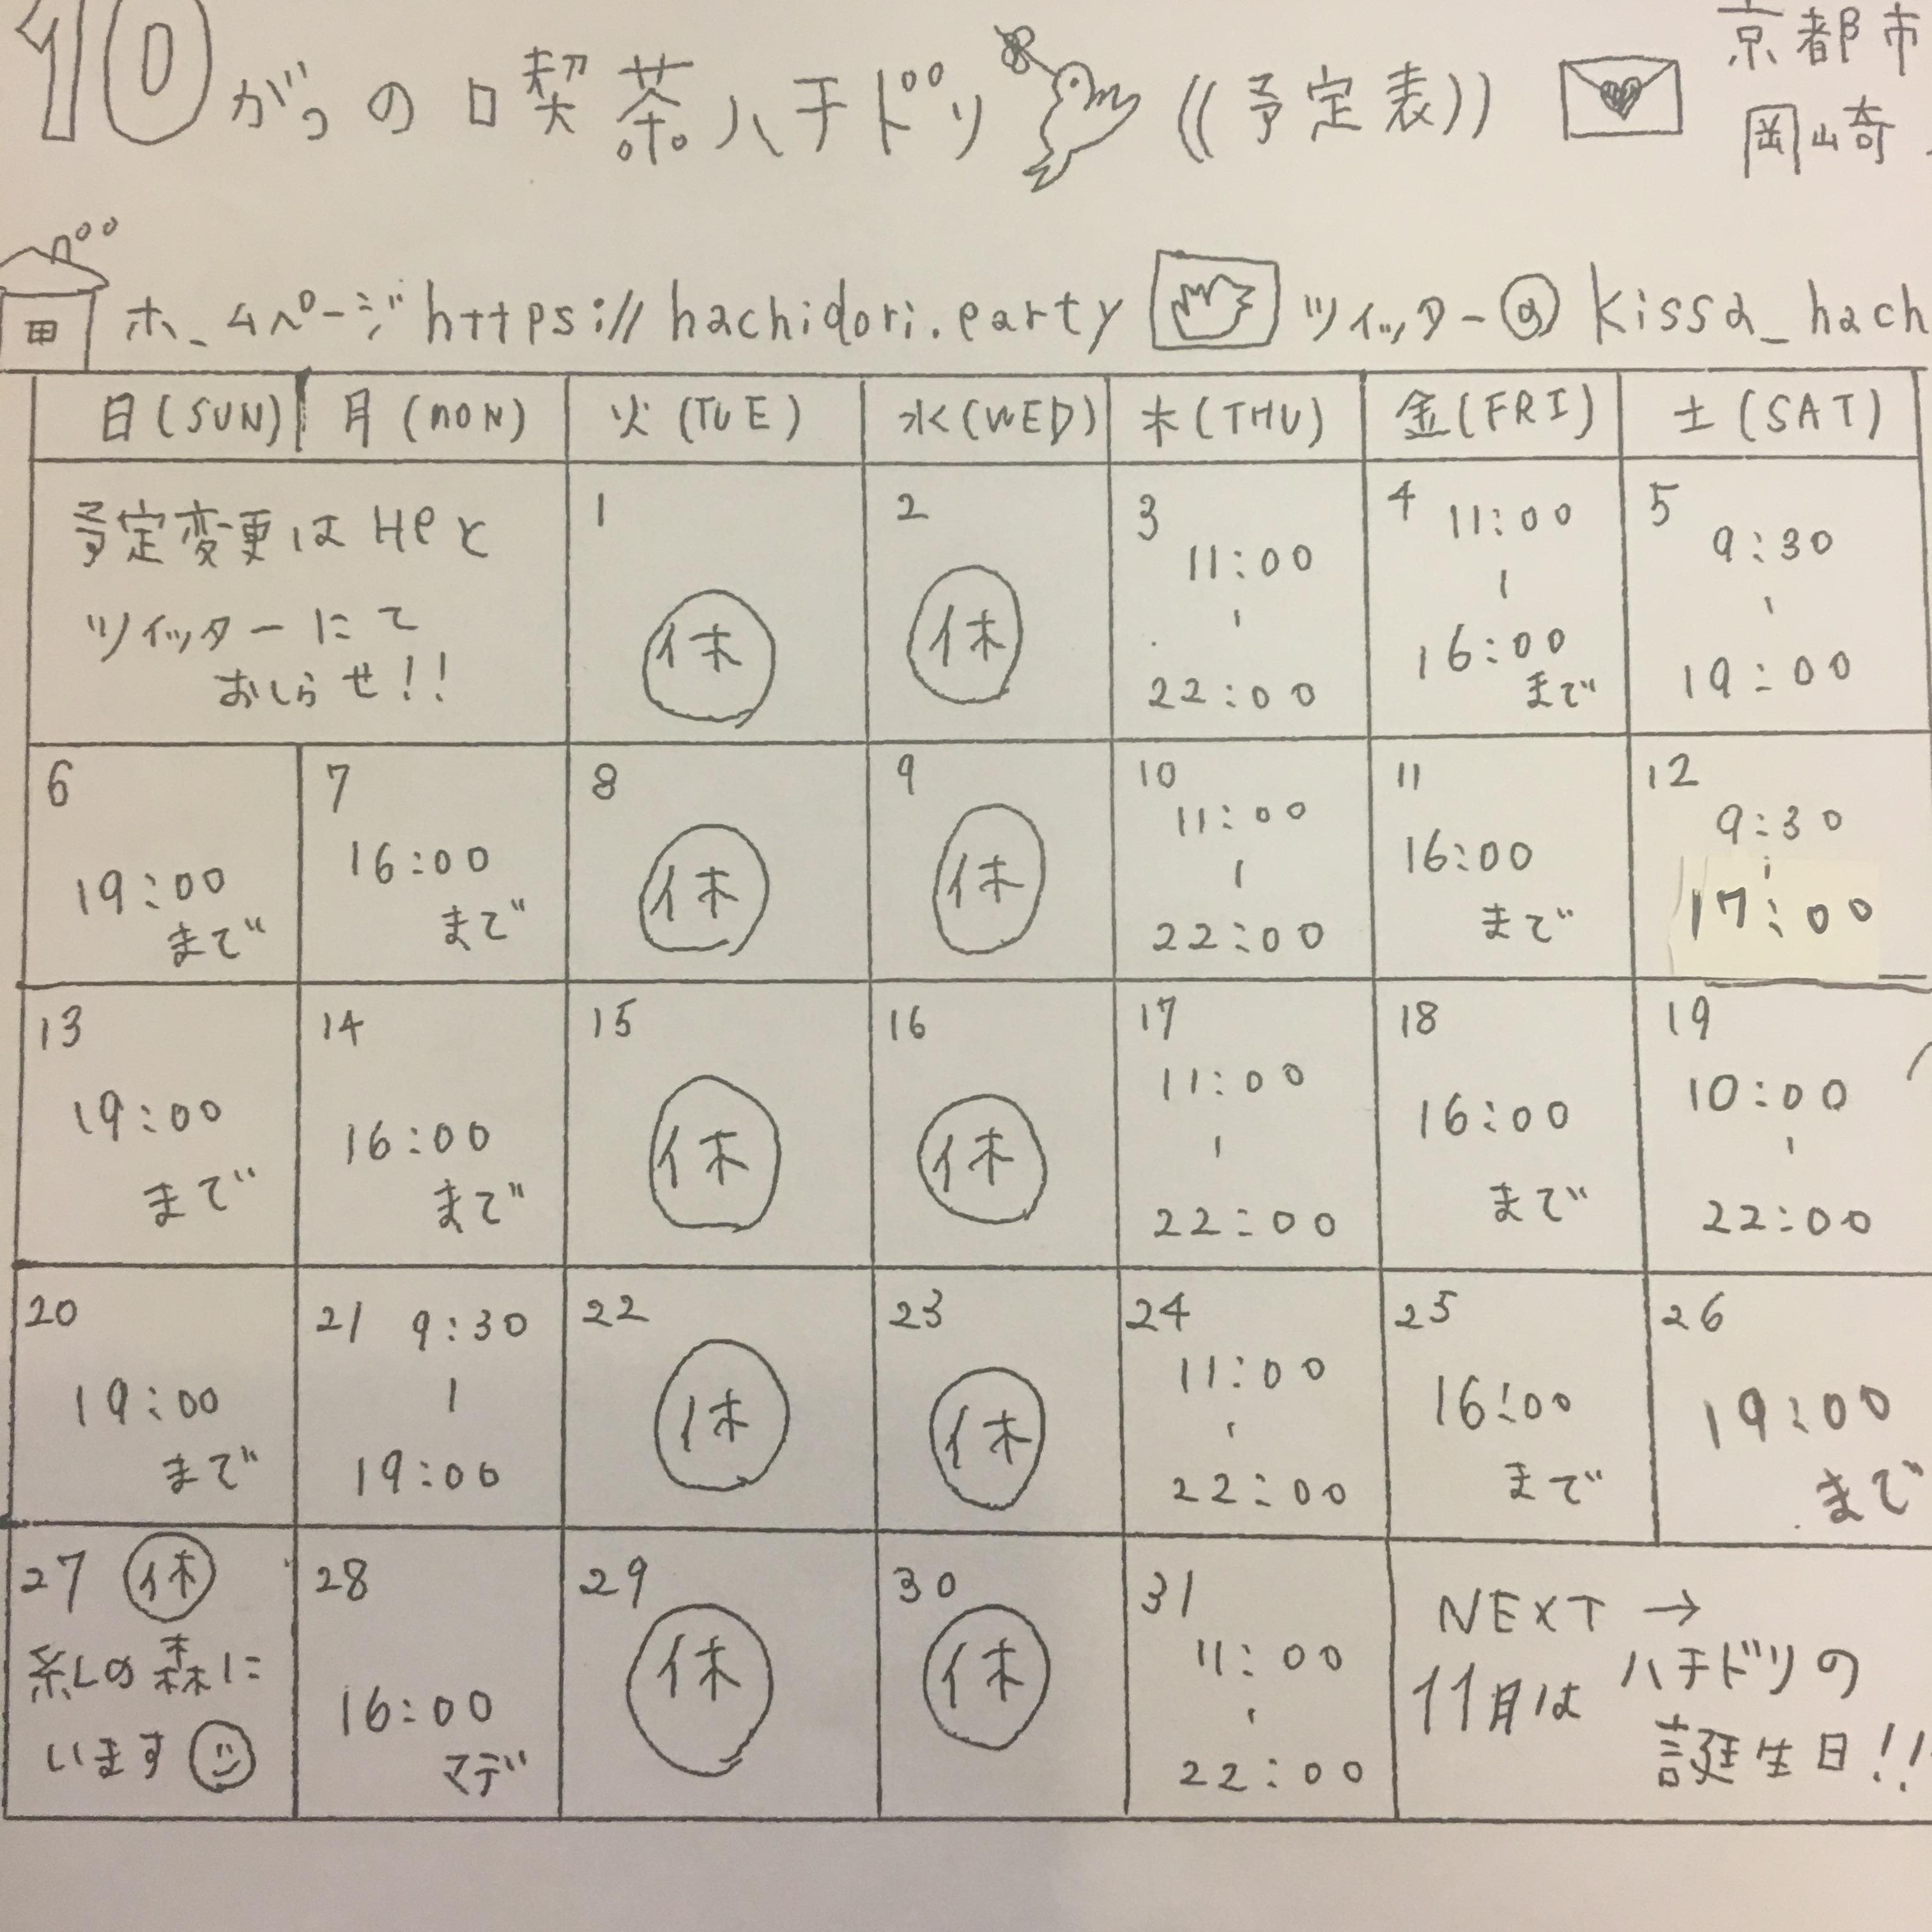 10がつの喫茶ハチドリ ((予定表)) 京都市
岡崎
ホームページ https://hachidori.party ツイッター@kissa_hach
日(SUN) 月(MON) 火(TUE) 水(WED) 木(THU) 金(FRI) 土(SAT)
予定変更はHPと
ツイッターにて
おしらせ!!
1
休
2
休
3
11:00
-
22:00
4 11:00
-
16:00
まで
5
9:30
-
19:00
6
19:00
まで
7
16:00
まで
8
休
9
休
10
11:00
-
22:00
11
16:00
まで
12
9:30
-
17:00
13
19:00
まで
14
16:00
まで
15
休
16
休
17
11:00
-
22:00
18
16:00
まで
19
10:00
-
22:00
20
19:00
まで
21 9:30
-
19:00
22
休
23
休
24
11:00
-
22:00
25
16:00
まで
26
19:00
まで
27 休
糺の森に
います
28
16:00
マデ
29
休
30
休
31
11:00
-
22:00
NEXT →
11月は ハチドリの
誕生日!!